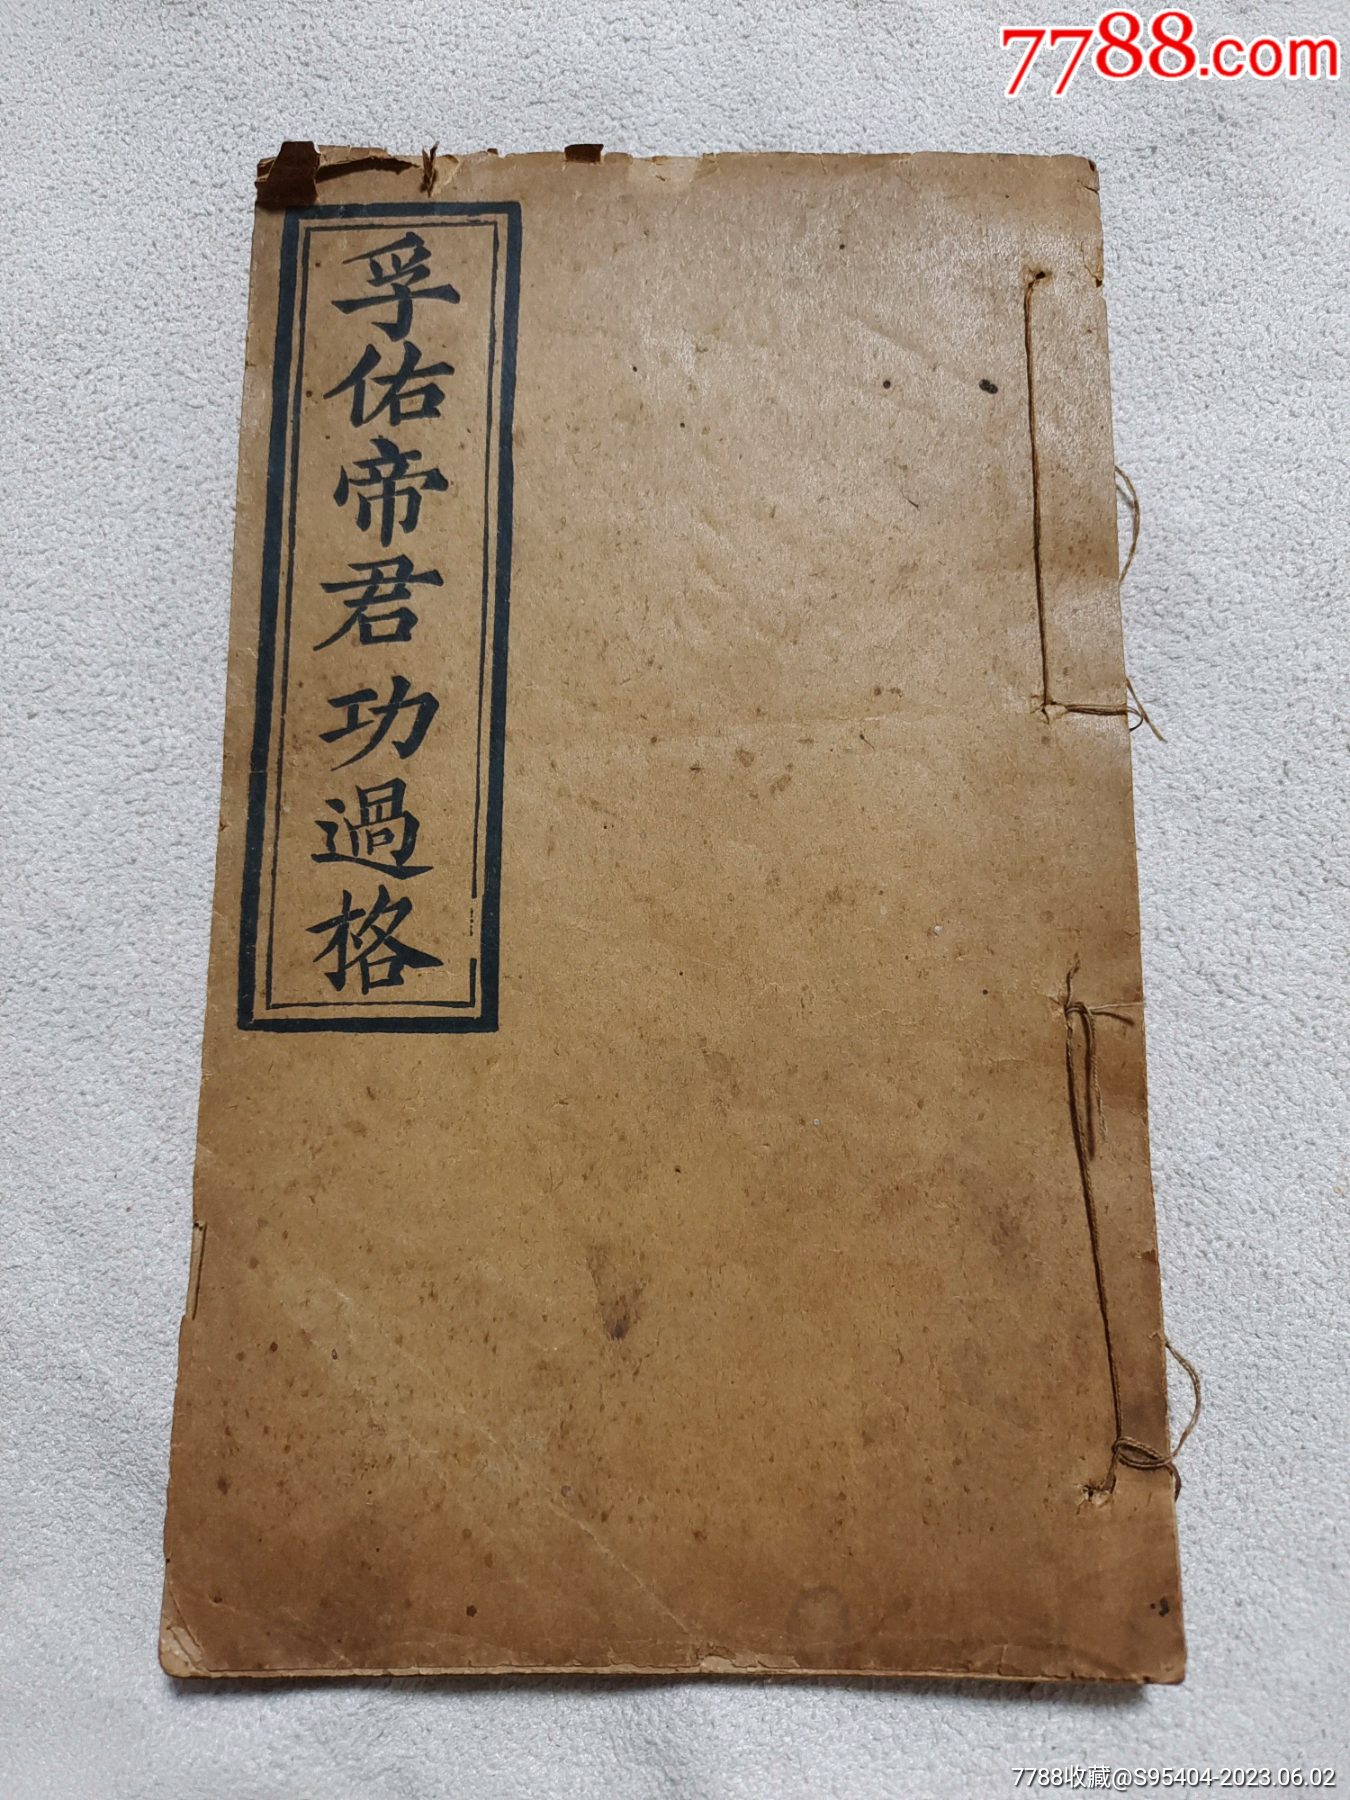 7788.com
孚佑帝君功過格
7788收藏@S95404-2023.06.02